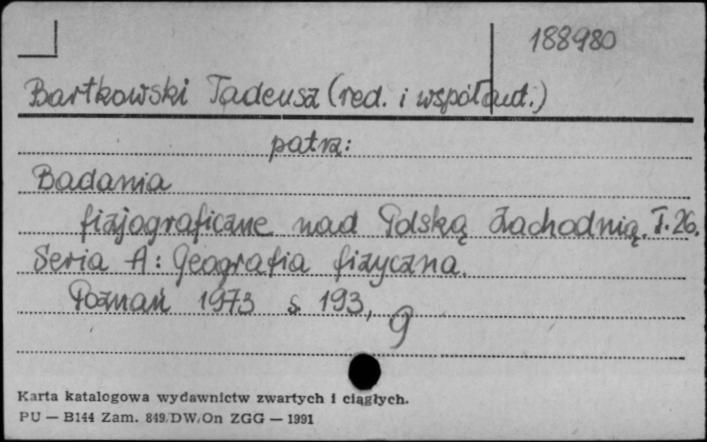 188980
Bartkowski Tadeusz (red. i współaut.)
patrz:
Badania
fizjograficzne nad Polską Zachodnią. T. 26.
Seria A: Geografia fizyczna.
Poznań 1973 s. 193, 9
Karta katalogowa wydawnictw zwartych i ciągłych.
PU — B144 Zam. 849/DW/On ZGG — 1991